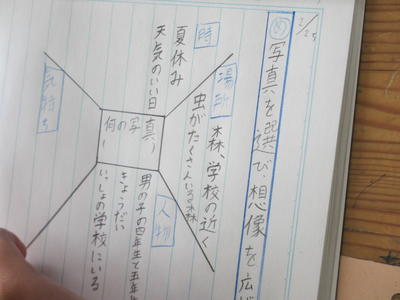 2/25
め 写真を選び、想像を広げ
時
夏休み
天気のいい日
場所
森、学校の近く
虫がたくさんいる森
写真
の
何
人物
男の子の四年生と五年生
きょうだい
いっしょの学校にいる
気持ち